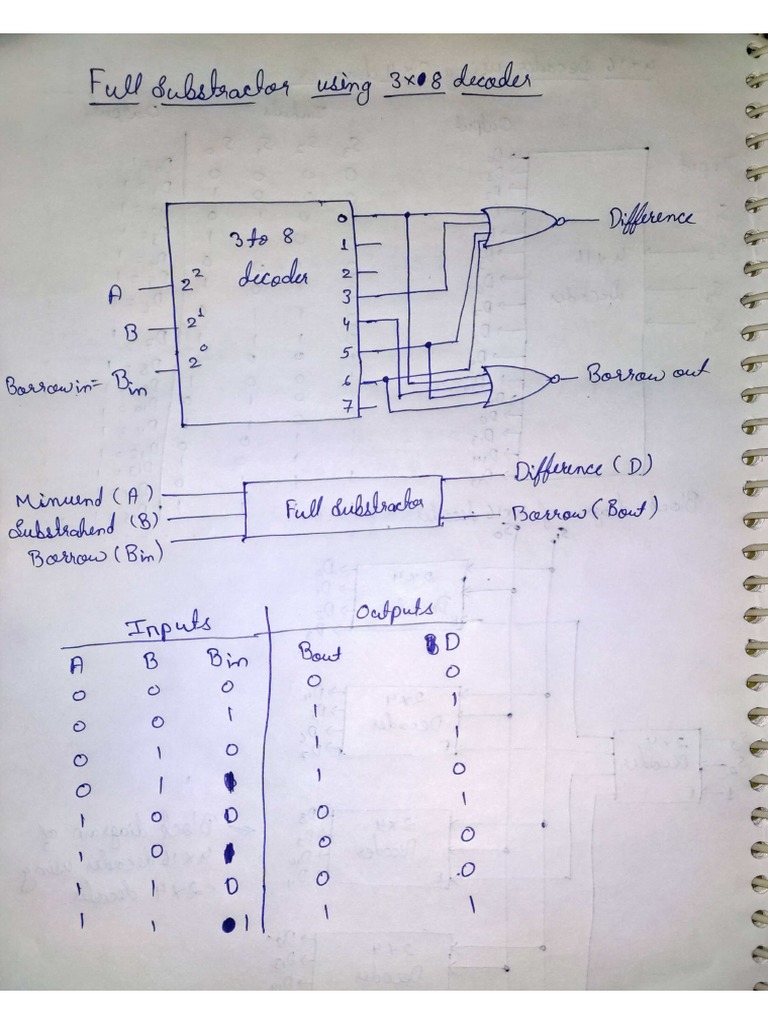 Full Substractor using 3x8 decoder
3 to 8
decoder
0
1
2
3
4
5
6
7
A 2²
B 2¹
Borrow in = Bin 2⁰
Difference
Borrow out
Minuend (A)
Substrahend (B)
Borrow (Bin)
Full Substractor
Difference (D)
Borrow (Bout)
Inputs Outputs
A B Bin Bout D
0 0 0 0 0
0 0 1 1 1
0 1 0 1 1
0 1 1 1 0
1 0 0 0 1
1 0 1 0 0
1 1 0 0 0
1 1 1 1 1